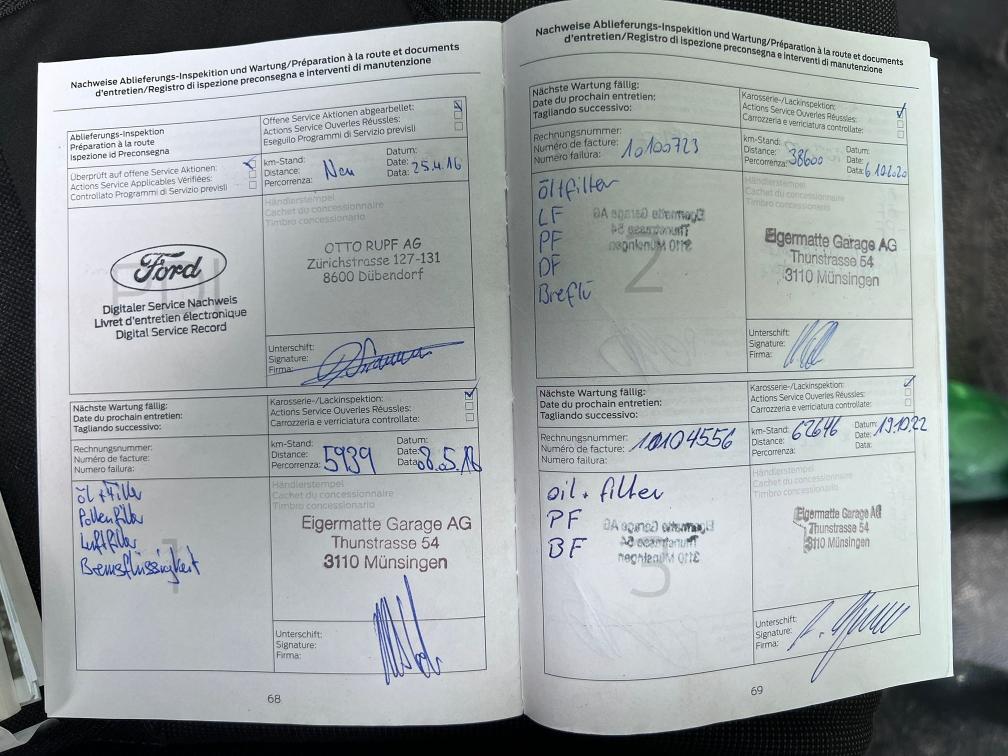 Nachweise Ablieferungs-Inspektion und Wartung/Préparation à la route et documents
d'entretien/Registro di ispezione preconsegna e interventi di manutenzione
Ablieferungs-Inspektion
Préparation à la route
Ispezione id Preconsegna
Offene Service Aktionen abgearbeitet:
Actions Service Ouverles Réussles:
Eseguilo Programmi di Servizio previsli
Überprüft auf offene Service Aktionen:
Actions Service Applicables Vérifiées:
Controllato Programmi di Servizio previsli
km-Stand:
Distance:
Percorrenza:
Neu
Datum:
Date:
Data:
25.4.16
Ford
Digitaler Service Nachweis
Livret d'entretien électronique
Digital Service Record
Händlerstempel
Cachet du concessionnaire
Timbro concessionario
OTTO RUPF AG
Zürichstrasse 127-131
8600 Dübendorf
Unterschift:
Signature:
Firma:
Nächste Wartung fällig:
Date du prochain entretien:
Tagliando successivo:
Karosserie-/Lackinspektion:
Actions Service Ouverles Réussles:
Carrozzeria e verriciatura controllate:
Rechnungsnummer:
Numéro de facture:
Numero failura:
km-Stand:
Distance:
Percorrenza:
5939
Datum:
Date:
Data:
08.05.18
öl + Filter
Pollenfilter
Luftfilter
Bremsflüssigkeit
1
Händlerstempel
Cachet du concessionnaire
Timbro concessionario
Eigermatte Garage AG
Thunstrasse 54
3110 Münsingen
Unterschift:
Signature:
Firma:
68
Nachweise Ablieferungs-Inspektion und Wartung/Préparation à la route et documents
d'entretien/Registro di ispezione preconsegna e interventi di manutenzione
Nächste Wartung fällig:
Date du prochain entretien:
Tagliando successivo:
Karosserie-/Lackinspektion:
Actions Service Ouverles Réussles:
Carrozzeria e verriciatura controllate:
Rechnungsnummer:
Numéro de facture:
Numero failura:
10100723
km-Stand:
Distance:
Percorrenza:
38600
Datum:
Date:
Data:
6.10.2020
öltfilter
LF
PF
DF
Breflü
2
Händlerstempel
Cachet du concessionnaire
Timbro concessionario
Eigermatte Garage AG
Thunstrasse 54
3110 Münsingen
Unterschift:
Signature:
Firma:
Nächste Wartung fällig:
Date du prochain entretien:
Tagliando successivo:
Karosserie-/Lackinspektion:
Actions Service Ouverles Réussles:
Carrozzeria e verriciatura controllate:
Rechnungsnummer:
Numéro de facture:
Numero failura:
10104556
km-Stand:
Distance:
Percorrenza:
62646
Datum:
Date:
Data:
19.10.22
oil + filter
PF
BF
3
Händlerstempel
Cachet du concessionnaire
Timbro concessionario
Eigermatte Garage AG
Thunstrasse 54
3110 Münsingen
Unterschift:
Signature:
Firma:
69